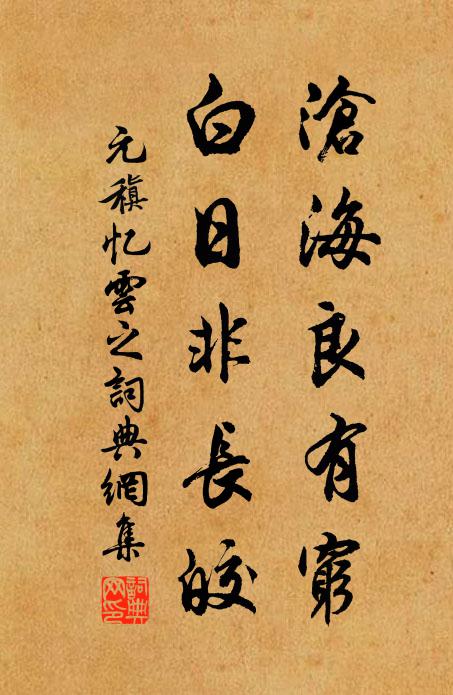 滄海良有窮
白日非長皎
元稹忆雲之詞典網集
詞典網印